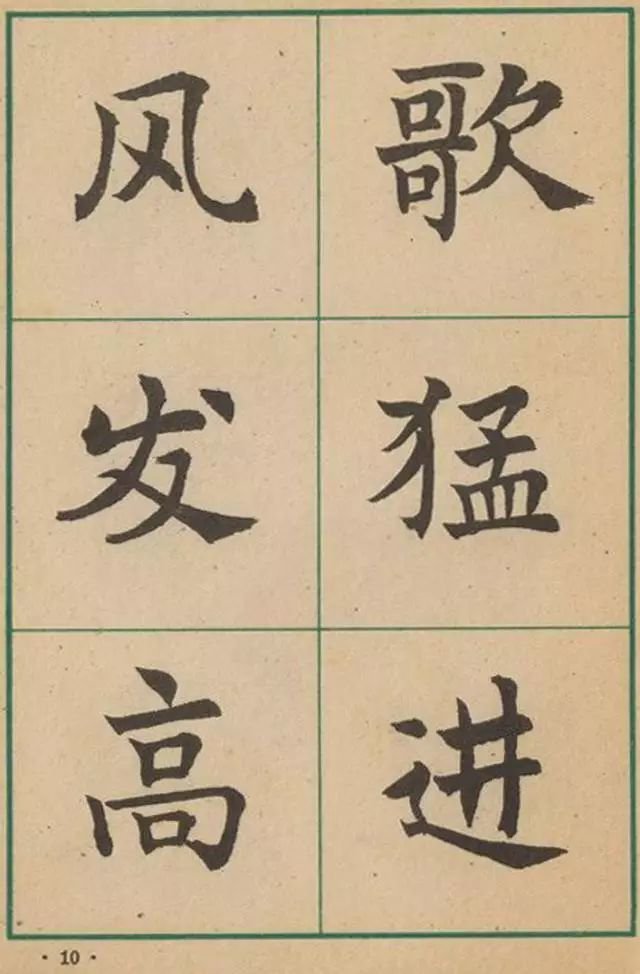 歌猛进
风发高
·10·